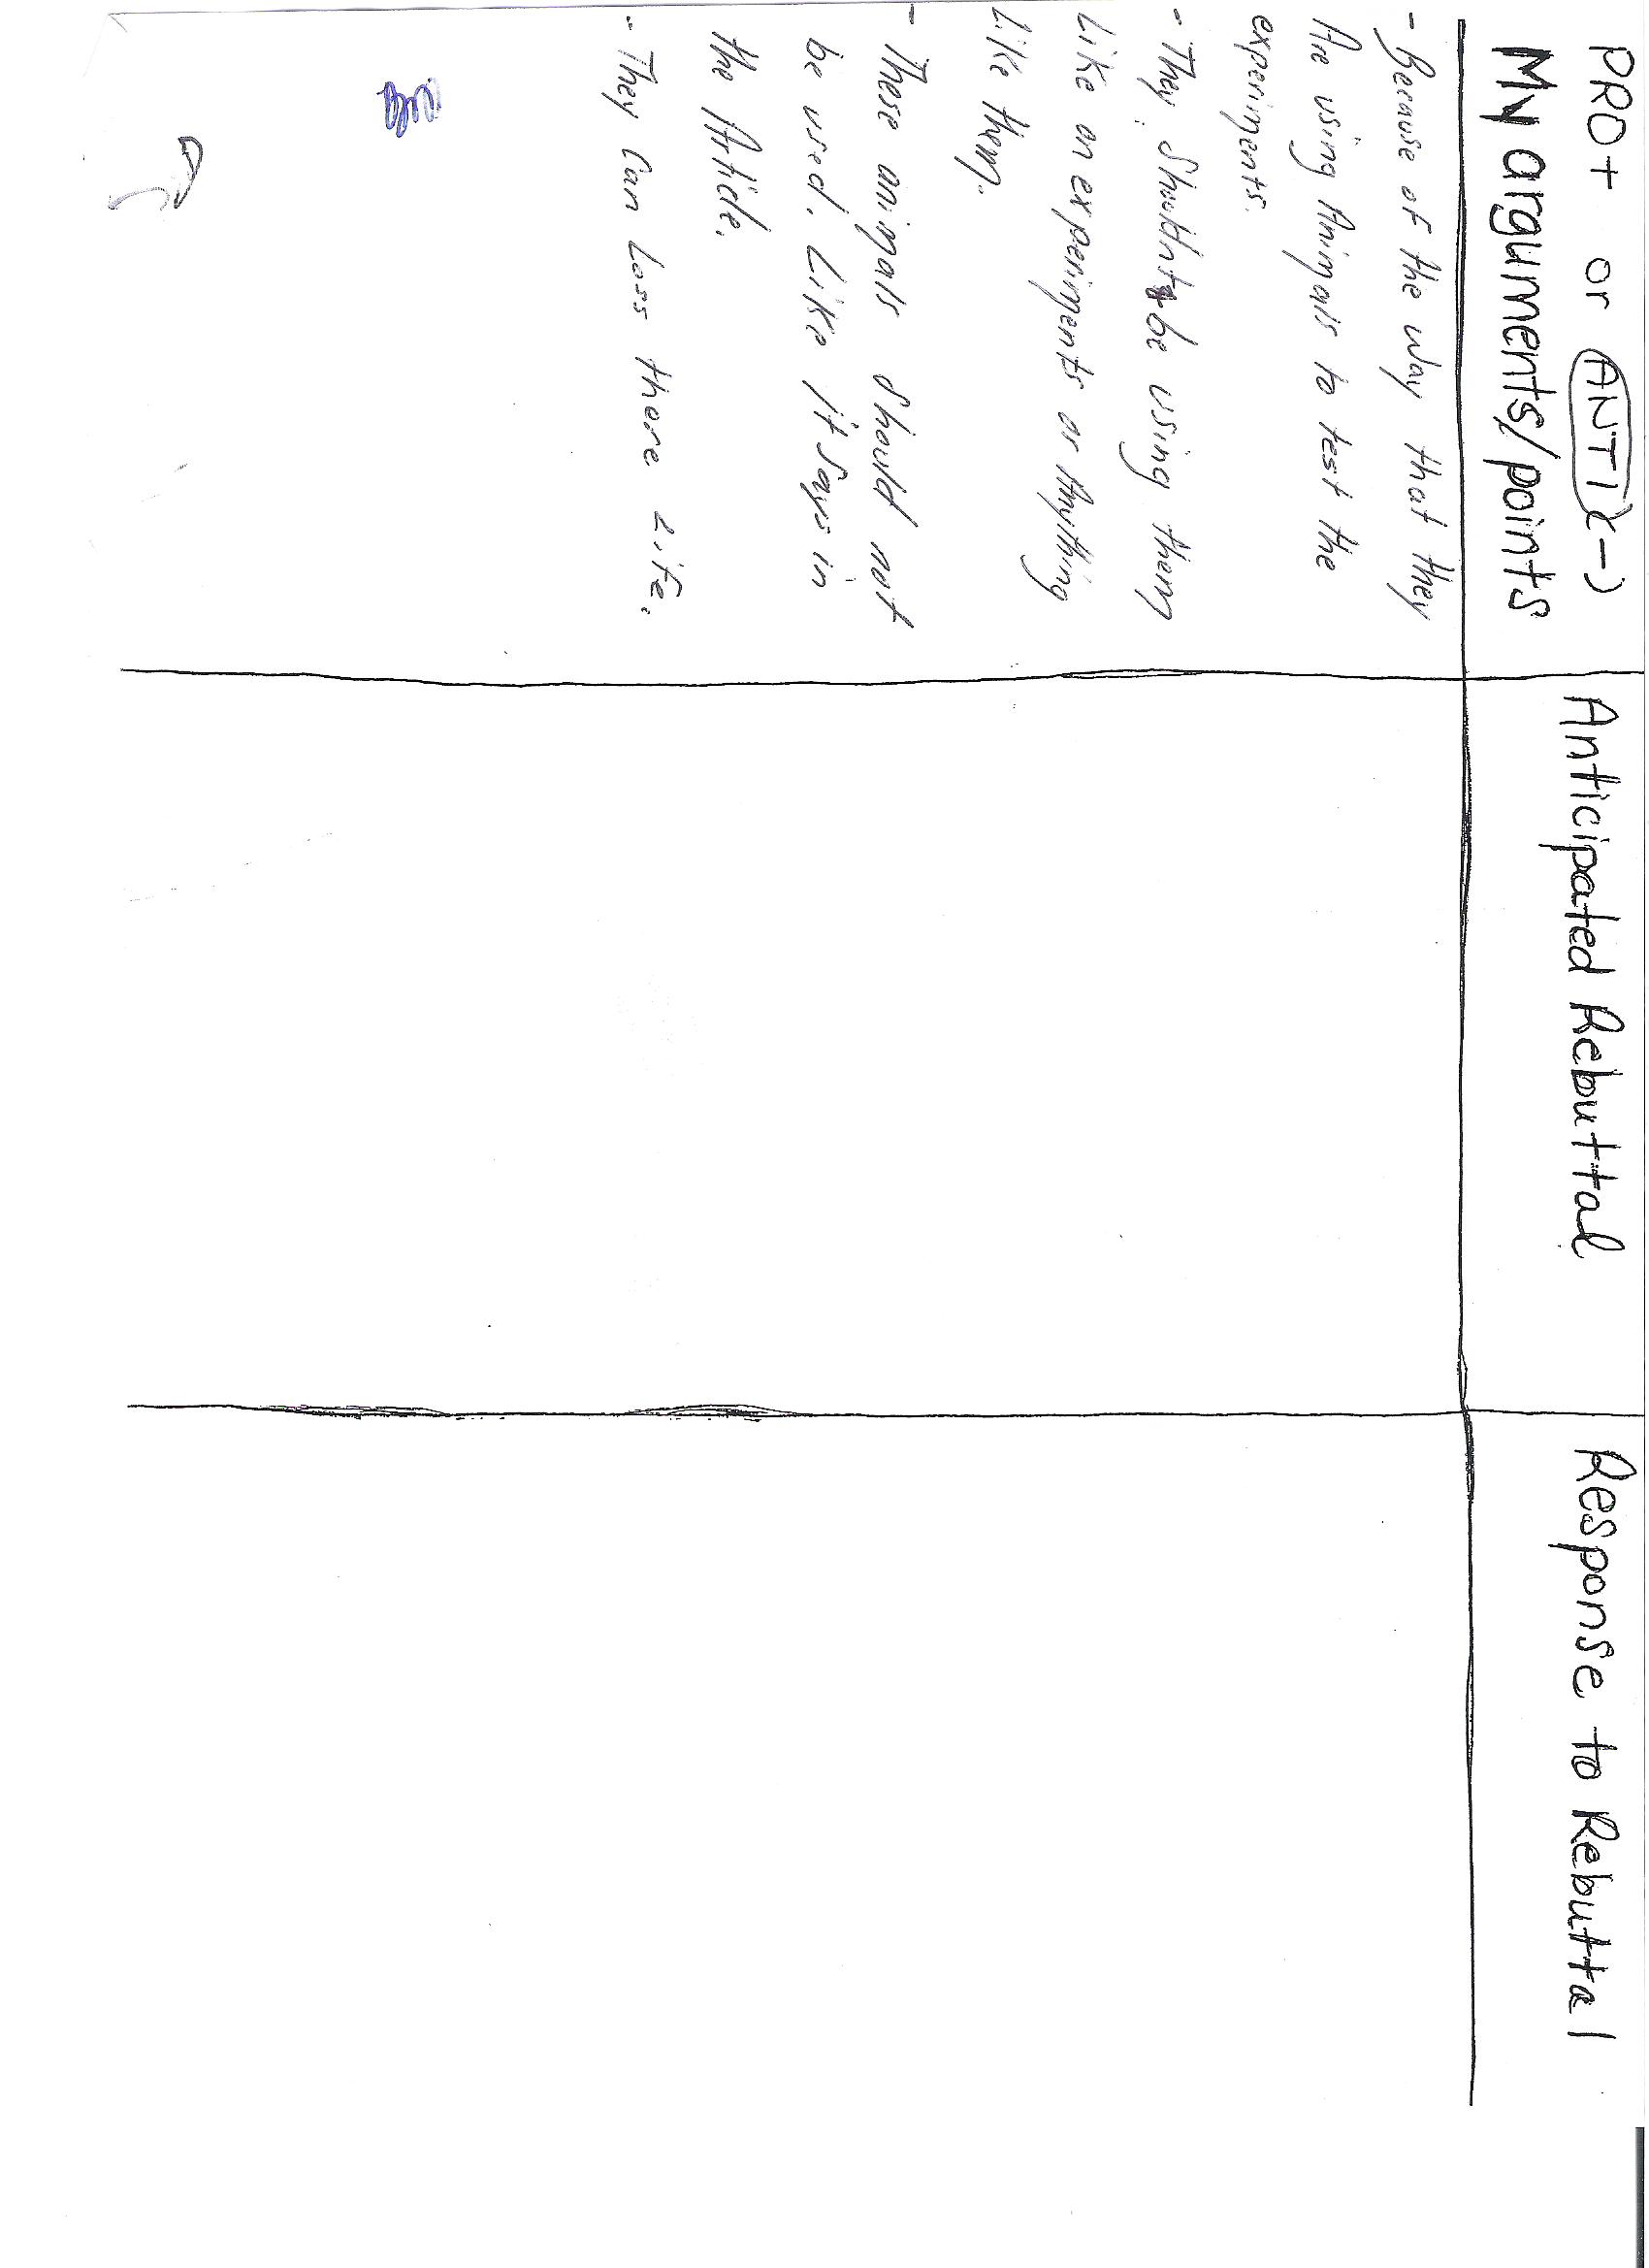 PRO+ or ANTI(-)
My arguments/points
Anticipated Rebuttal
Response to Rebuttal
- Because of the way that they
Are using Animals to test the
experiments.
- They Shouldnt be using them
Like an experiments or Anything
Like them.
- These animals should not
be used. Like it says in
the Article.
- They Can Loss there Life.